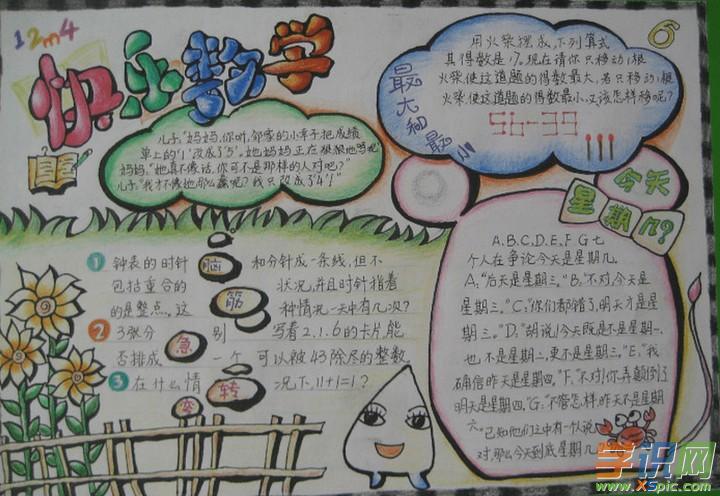 12m4
快乐数学
6
儿子:"妈妈,你听,邻家的小李子把成绩
单上的'1'改成了'5',她妈妈正在狠狠地骂呢
妈妈:"她真不像话,你可不是那样的人对吧?"
儿子:"我才不像她那么蠢呢?我只改成了'4'!"
最大和最小
用火柴摆成下列算式
其得数是17,现在请你只移动1根
火柴,使这道题的得数最大,若只移动1根
火柴,使这道题的得数最小,又该怎样移呢?
56-39
脑筋急转弯
1 钟表的时针和分针成一条线,但不
包括重合的状况,并且时针指着
的是整点。这种情况一天中有几次?
2 3张分别写着2.1.6的卡片,能
否排成一个可以被43除尽的整数
3 在什么情况下,11+1=1?
今天
星期几?
A、B、C、D、E、F、G七
个人在争论今天是星期几。
A:"后天是星期三。"B:"不对,今天是
星期三。"C:"你们都错了,明天才是星
期三。"D:"胡说!今天既是不是星期一,
也不是星期二,更不是星期三。"E:"我
确信昨天是星期四。"F:"不对!你弄颠倒了
明天是星期四。"G:"不管怎样,昨天不是星期
六。"已知他们之中有一个人说
对,那么今天到底星期几
学识网
www.XSpic.com